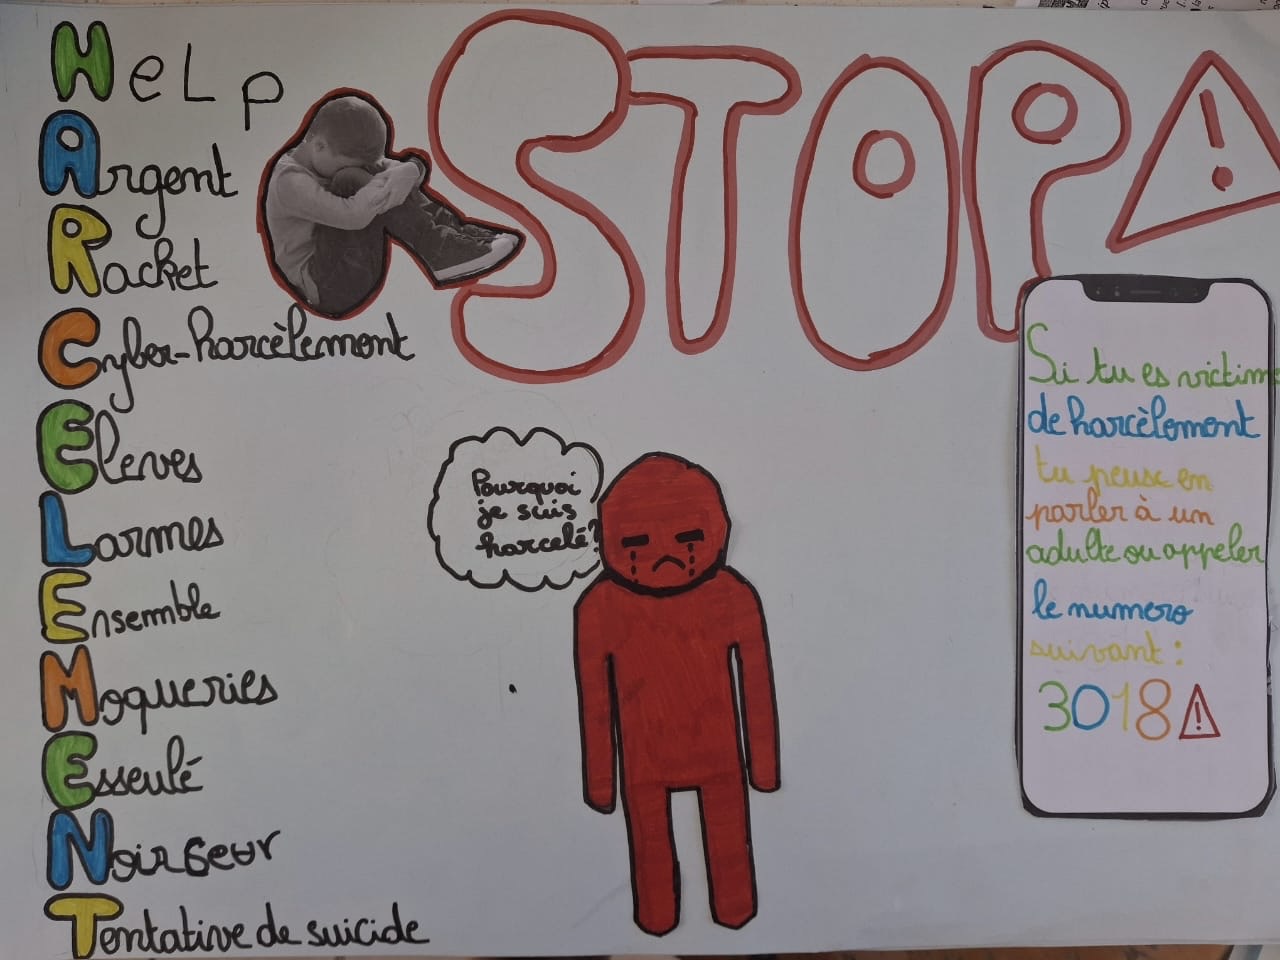 HeLp
Argent
Racket
Cyber-harcèlement
Eleves
Larmes
Ensemble
Moqueries
Esseulé
Noirseur
Tentative de suicide
STOP
!
Pourquoi
je suis
harcelé?
Si tu es victime
de harcèlement
tu peux en
parler à un
adulte ou appeler
le numero
suivant :
3018 !